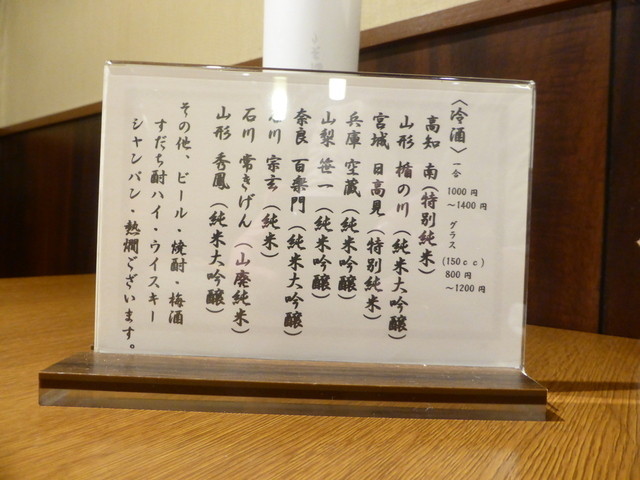 〈冷酒〉 一合 1000円～1400円 グラス(150cc) 800円～1200円
高知 南(特別純米)
山形 楯の川(純米大吟醸)
宮城 日高見(特別純米)
兵庫 空蔵(純米吟醸)
山梨 笹一(純米吟醸)
奈良 百楽門(純米大吟醸)
川 宗玄(純米)
石川 常きげん(山廃純米)
山形 秀鳳(純米大吟醸)
その他、ビール・焼酎・梅酒
すだち酎ハイ・ウイスキー
シャンパン・熱燗ございます。